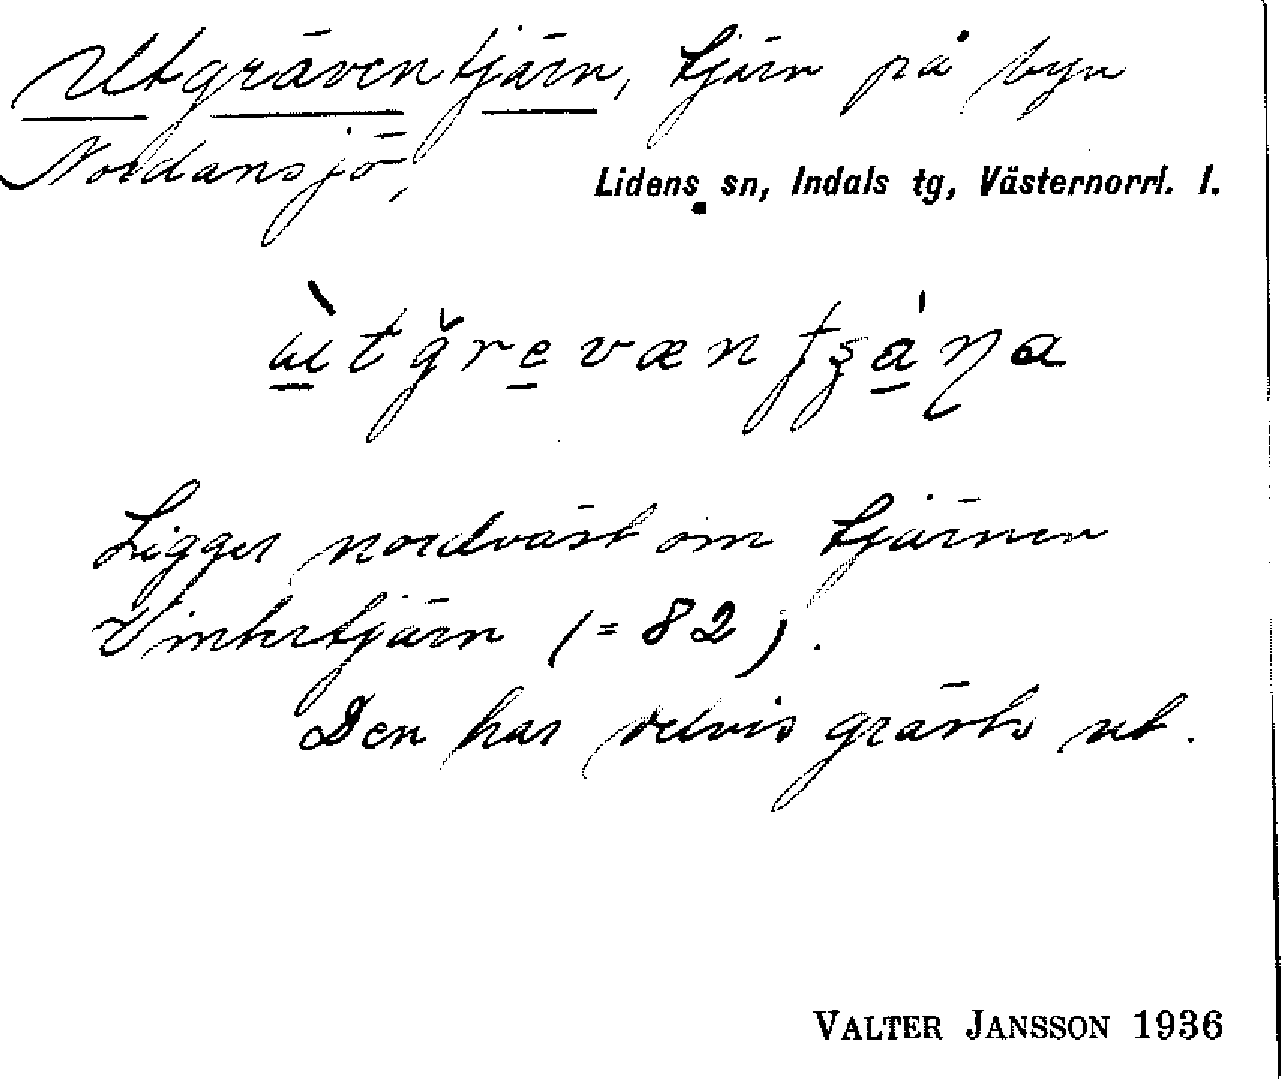 Utgräventjärn, tjärn på byn
Nordansjö,
Lidens sn, Indals tg, Västernorrl. l.
Ligger nordväst om tjärnen
Vintertjärn (= 82).
Den har delvis grävts ut.
VALTER JANSSON 1936